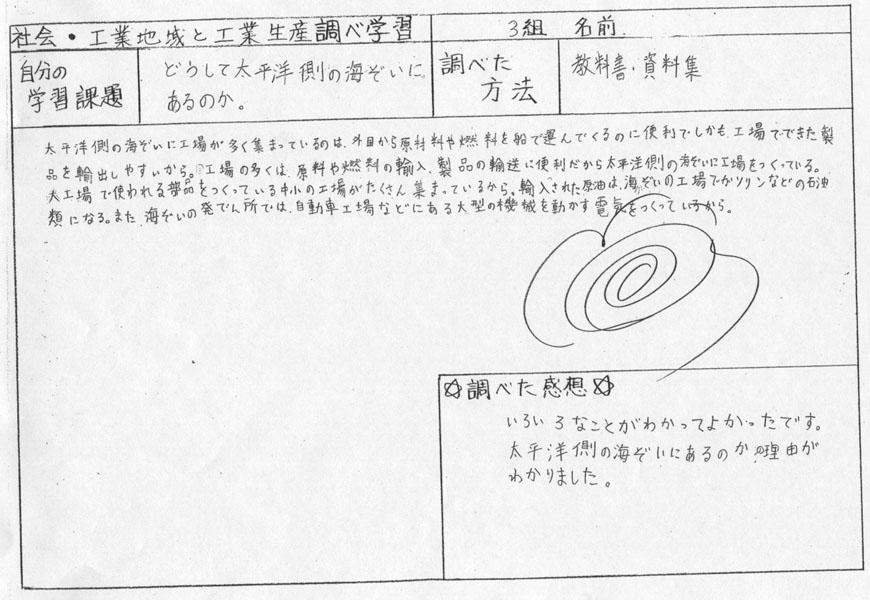 社会・工業地域と工業生産調べ学習
3組 名前
自分の学習課題
どうして太平洋側の海ぞいに
あるのか。
調べた方法
教科書・資料集
太平洋側の海ぞいに工場が多く集まっているのは、外国から原材料や燃料を船で運んでくるのに便利でしかも、工場でできた製
品を輸出しやすいから。工場の多くは、原料や燃料の輸入、製品の輸送に便利だから太平洋側の海ぞいに工場をつくっている。
大工場で使われる部品をつくっている中小の工場がたくさん集まっているから。輸入された原油は、海ぞいの工場でガソリンなどの石油
類になる。また、海ぞいの発でん所では、自動車工場などにある大型の機械を動かす電気をつくっているから。
調べた感想
いろいろなことがわかってよかったです。
太平洋側の海ぞいにあるのかの理由が
わかりました。